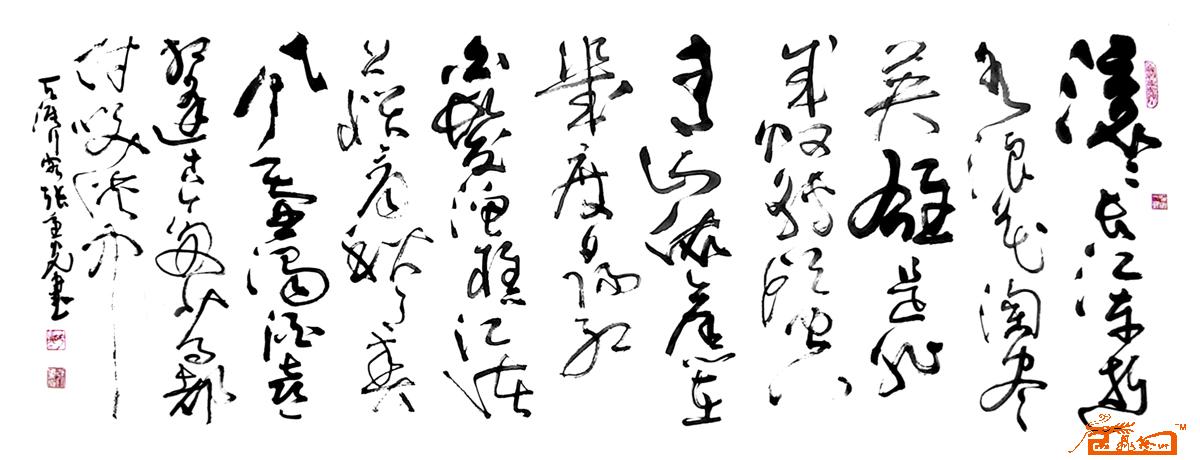 滚滚长江东逝
水浪花淘尽
英雄是非
成败转头空
青山依旧在
几度夕阳红
白发渔樵江渚
上惯看秋月春
风一壶浊酒喜
相逢古今多少事都
付笑谈中
张重光书